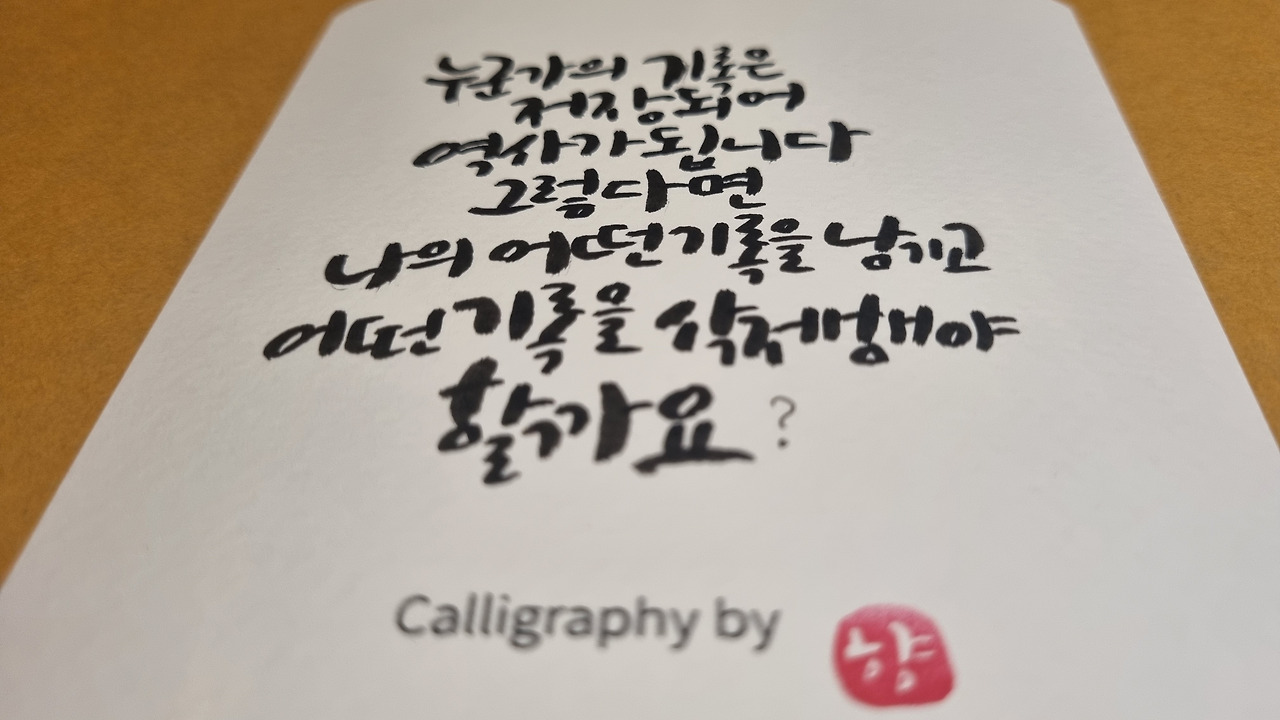 누군가의 기록은
저장되어
역사가 됩니다
그럼다면
나의 어떤 기록을 남기고
어떤 기록을 삭제행해야
할까요?
Calligraphy by 향